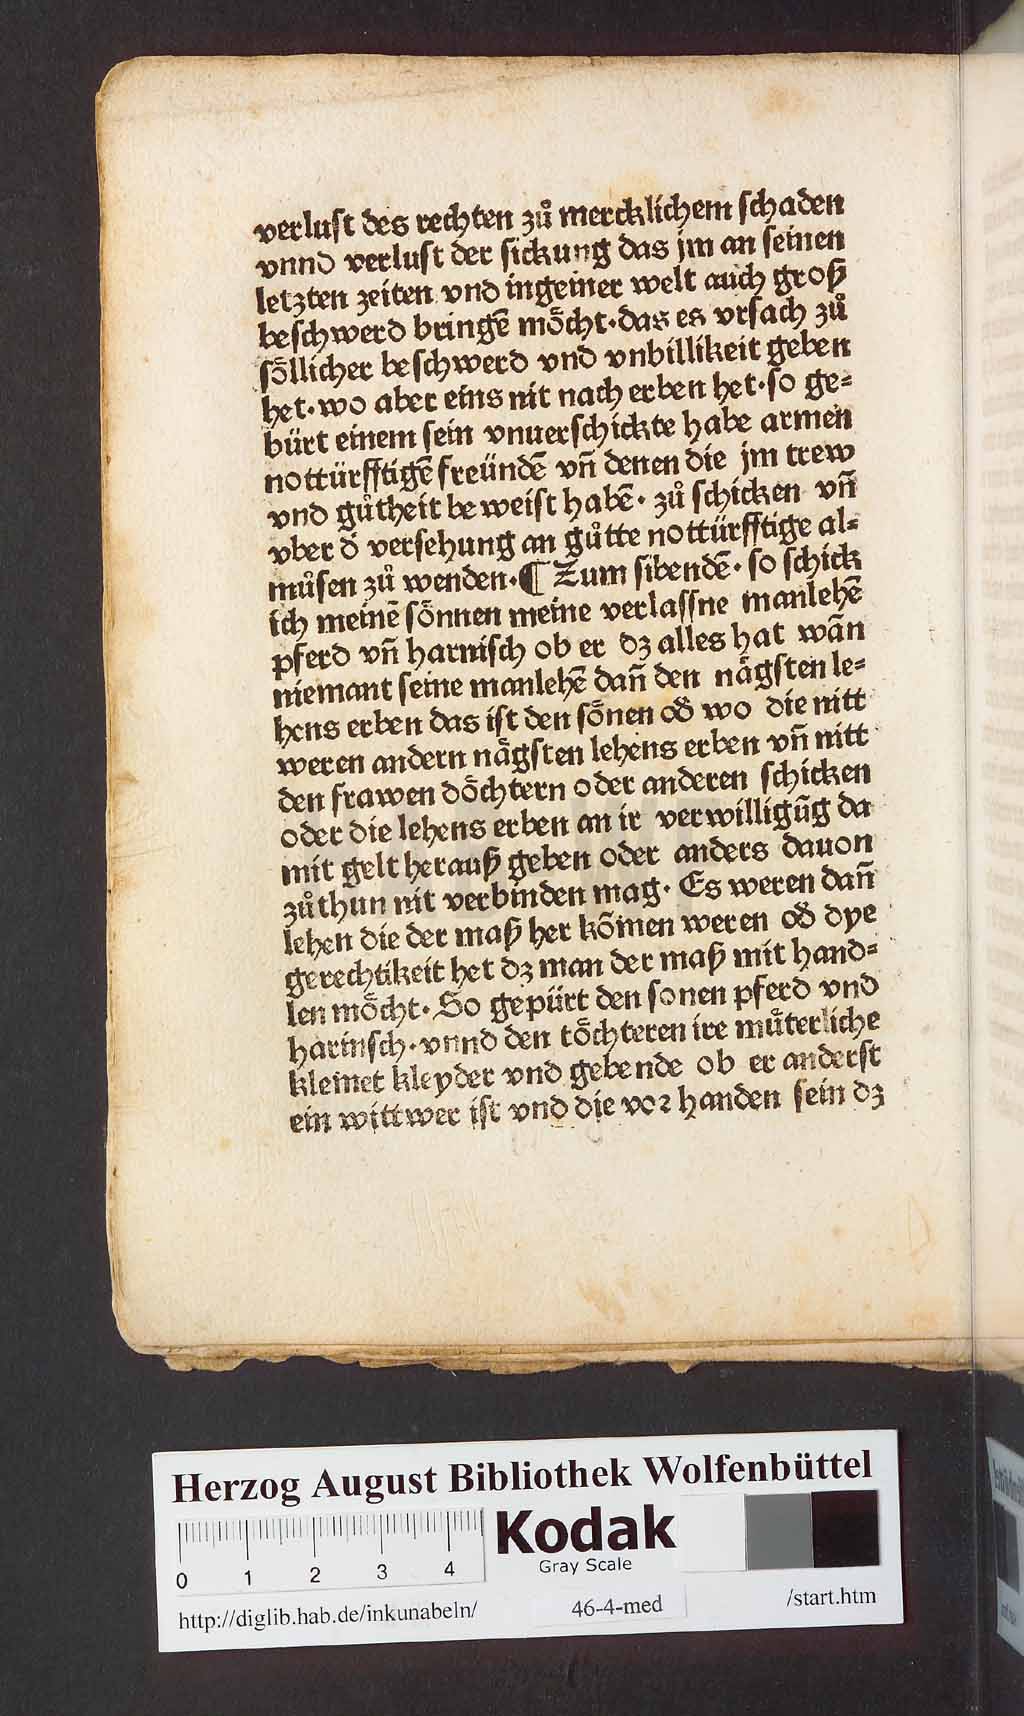 verlust des rechten zuͦ mercklichem schaden
vnnd verlust der sickung das jm an seinen
letzten zeiten vnd ingeiner welt auch groß
beschwerd bringē moͤcht·das es vrsach zuͦ
soͤllicher beschwerd vnd vnbillikeit geben
het·wo aber eins nit nach erben het·so ge⸗
bürt einem sein vnuerschickte habe armen
nottürfftigē freündē vn̄ denen die jm trew
vnd guͦtheit beweist habē· zuͦ schicken vn̄
vber d̄ versehung an guͦtte nottürfftige al⸗
muͦsen zuͦ wenden·¶ Zum sibendē· so schick
ich meinē soͤnnen meine verlassne manlehē
pferd vn̄ harnisch ob er dz alles hat wān
niemant seine manlehē dan̄ den naͤgsten le⸗
hens erben das ist den soͤnen od̄ wo die nitt
weren andern naͤgsten lehens erben vn̄ nitt
den frawen doͤchtern oder anderen schicken
oder die lehens erben an ir verwilligūg da
mit gelt herauß geben oder anders dauon
zuͦthun nit verbinden mag· Es weren dan̄
lehen die der maß her kōmen weren od̄ dye
gerechtikeit het dz man der maß mit hand⸗
len moͤcht· So gepürt den sonen pferd vnd
harinsch·vnnd den toͤchteren ire muͤterliche
kleinet kleyder vnd gebende ob er anderst
ein wittwer ist vnd die vor handen sein dz
Herzog August Bibliothek Wolfenbüttel
Kodak
Gray Scale
0 1 2 3 4
http://diglib.hab.de/inkunabeln/ 46-4-med /start.htm